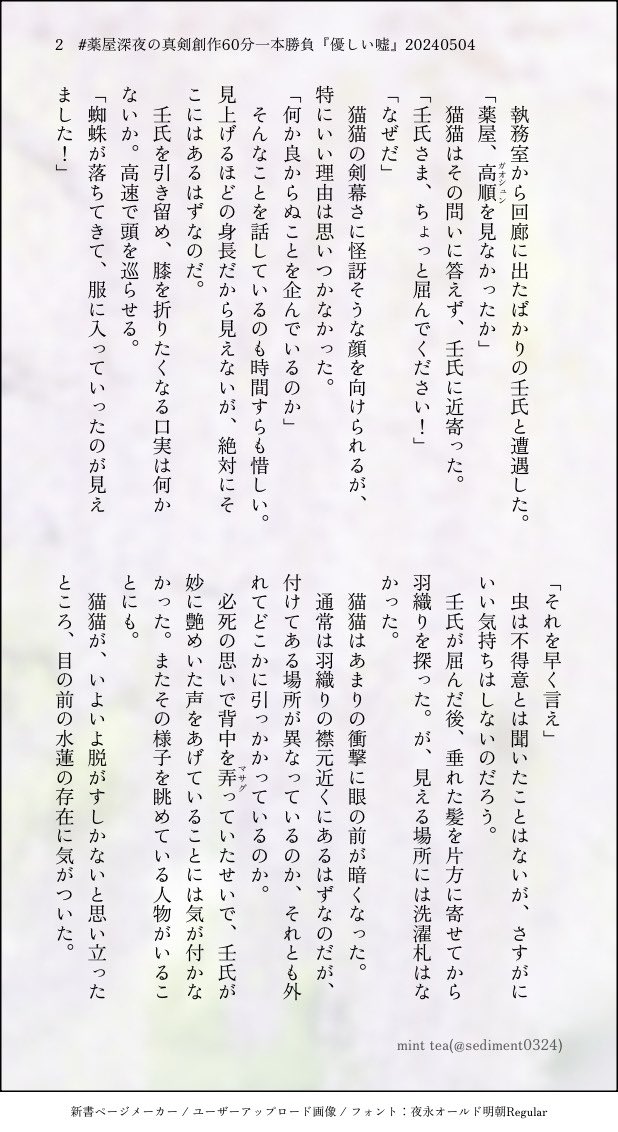 2　#薬屋深夜の真剣創作60分一本勝負『優しい嘘』20240504
　執務室から回廊に出たばかりの壬氏と遭遇した。
「薬屋、高順ガオシュンを見なかったか」
　猫猫はその問いに答えず、壬氏に近寄った。
「壬氏さま、ちょっと屈んでください！」
「なぜだ」
　猫猫の剣幕さに怪訝そうな顔を向けられるが、
特にいい理由は思いつかなかった。
「何か良からぬことを企んでいるのか」
　そんなことを話しているのも時間すらも惜しい。
見上げるほどの身長だから見えないが、絶対にそ
こにはあるはずなのだ。
　壬氏を引き留め、膝を折りたくなる口実は何か
ないか。高速で頭を巡らせる。
「蜘蛛が落ちてきて、服に入っていったのが見え
ました！」
「それを早く言え」
　虫は不得意とは聞いたことはないが、さすがに
いい気持ちはしないのだろう。
　壬氏が屈んだ後、垂れた髪を片方に寄せてから
羽織りを探った。が、見える場所には洗濯札はな
かった。
　猫猫はあまりの衝撃に眼の前が暗くなった。
　通常は羽織りの襟元近くにあるはずなのだが、
付けてある場所が異なっているのか、それとも外
れてどこかに引っかかっているのか。
　必死の思いで背中を弄マサグっていたせいで、壬氏が
妙に艶めいた声をあげていることには気が付かな
かった。またその様子を眺めている人物がいるこ
とにも。
　猫猫が、いよいよ脱がすしかないと思い立った
ところ、目の前の水蓮の存在に気がついた。
mint tea(@sediment0324)
新書ページメーカー / ユーザーアップロード画像 / フォント：夜永オールド明朝Regular